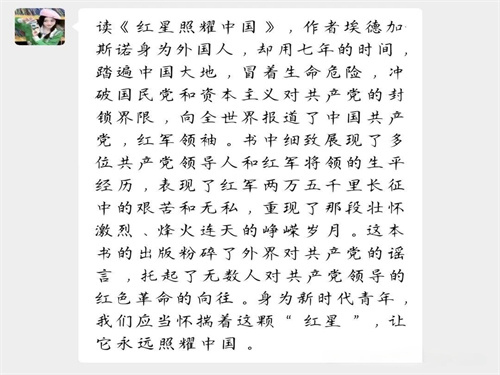 读《红星照耀中国》,作者埃德加
斯诺身为外国人,却用七年的时间,
踏遍中国大地,冒着生命危险,冲
破国民党和资本主义对共产党的封
锁界限,向全世界报道了中国共产
党,红军领袖。书中细致展现了多
位共产党领导人和红军将领的生平
经历,表现了红军两万五千里长征
中的艰苦和无私,重现了那段壮怀
激烈、烽火连天的峥嵘岁月。这本
书的出版粉碎了外界对共产党的谣
言,托起了无数人对共产党领导的
红色革命的向往。身为新时代青年,
我们应当怀揣着这颗“红星”,让
它永远照耀中国。